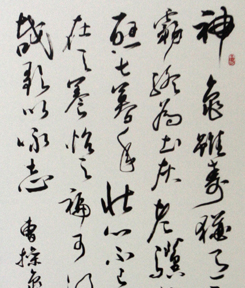 神龜雖壽猶有
霧終為土灰老驥
烈士暮年壯心不已
在天養怡之福可
哉歌以詠志 曹操龜